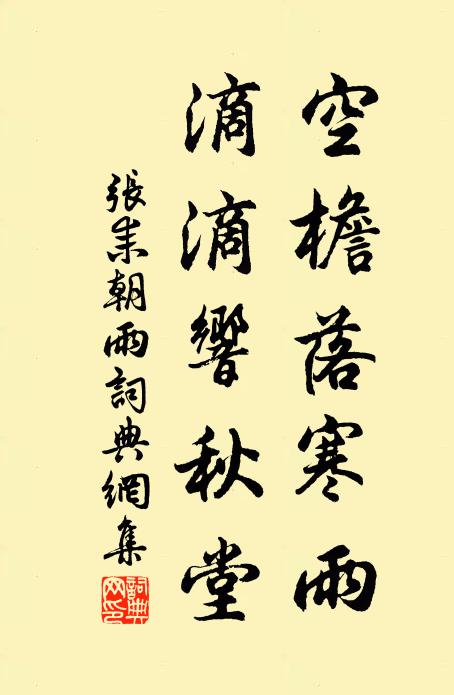 空檐落寒雨
滴滴響秋堂
張耒朝雨詞典網集